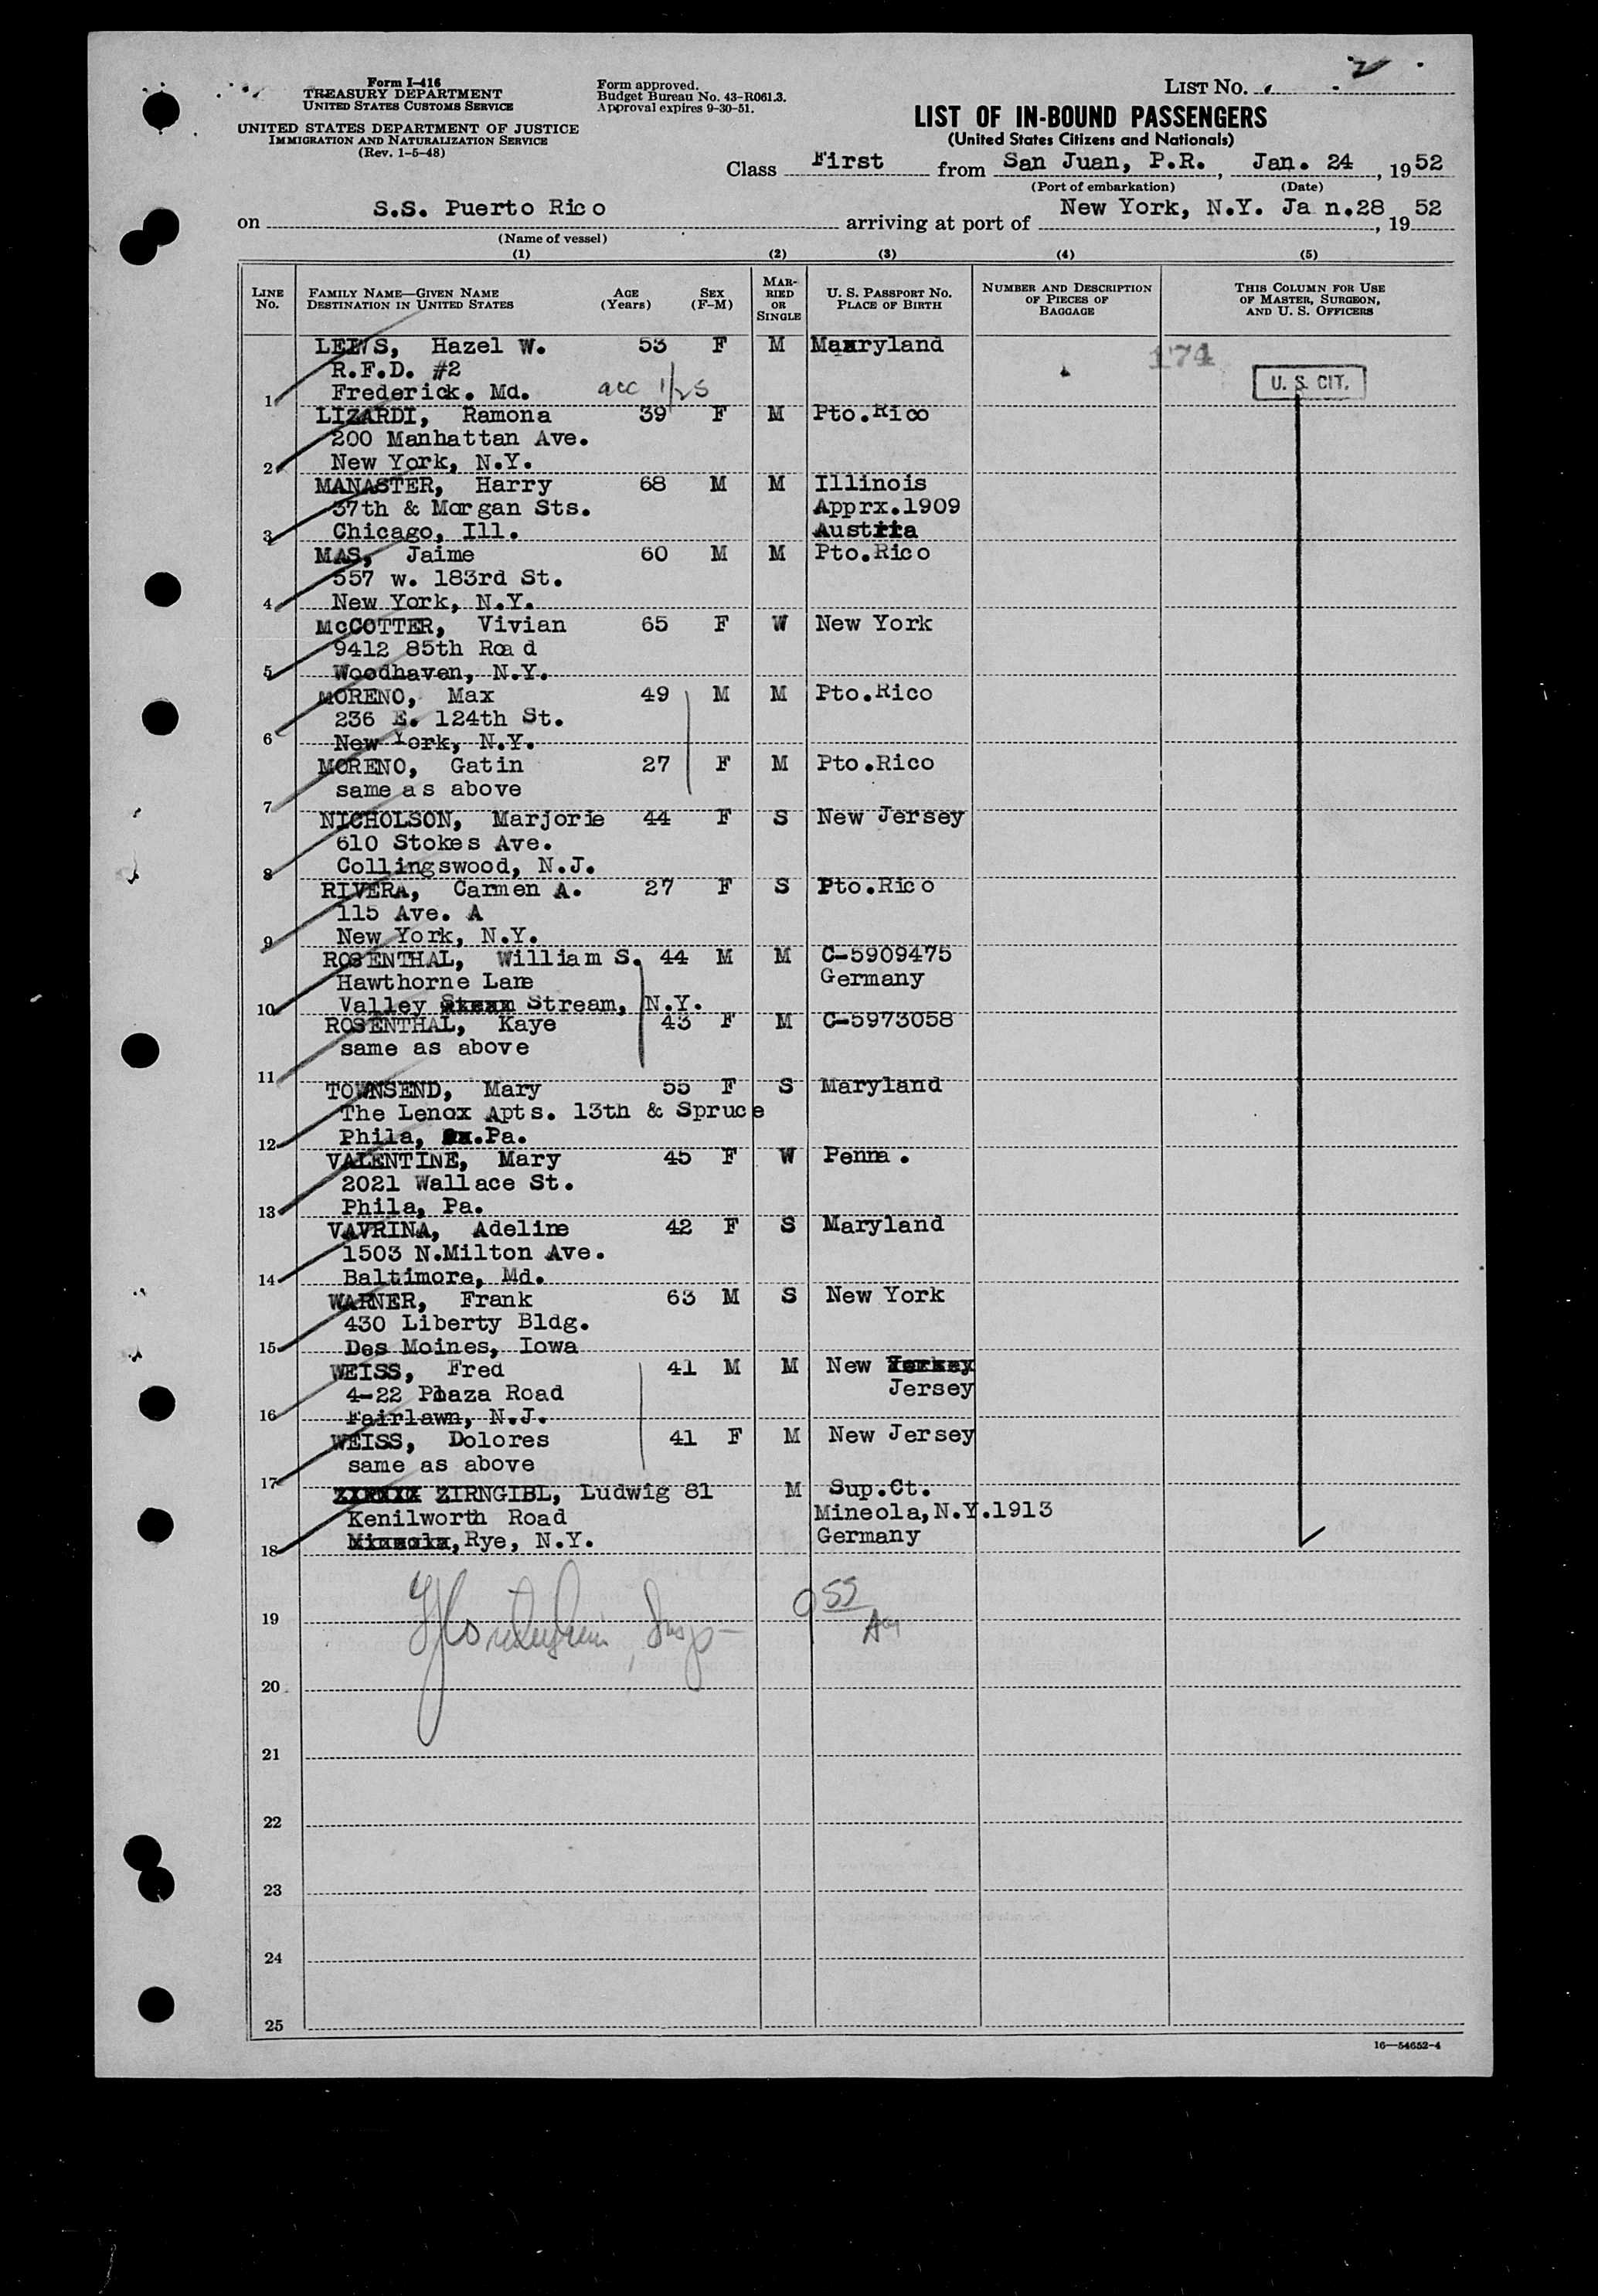 Form I-416
TREASURY DEPARTMENT
UNITED STATES CUSTOMS SERVICE
UNITED STATES DEPARTMENT OF JUSTICE
IMMIGRATION AND NATURALIZATION SERVICE
(Rev. 1-5-48)
Form approved.
Budget Bureau No. 43-R061.3.
Approval expires 9-30-51.
LIST No. 2
LIST OF IN-BOUND PASSENGERS
(United States Citizens and Nationals)
Class First from San Juan, P.R., Jan. 24, 1952
(Port of embarkation) (Date)
on S.S. Puerto Rico arriving at port of New York, N.Y. Jan.28, 1952
(Name of vessel)
(1) (2) (3) (4) (5)
LINE No. FAMILY NAME—GIVEN NAME DESTINATION IN UNITED STATES AGE (Years) SEX (F-M) MARRIED OR SINGLE U. S. PASSPORT No. PLACE OF BIRTH NUMBER AND DESCRIPTION OF PIECES OF BAGGAGE THIS COLUMN FOR USE OF MASTER, SURGEON, AND U. S. OFFICERS
LEEWS, Hazel W. 53 F M Maryland 174
R.F.D. #2 U. S. CIT.
1 Frederick. Md. acc 1/25
LIZARDI, Ramona 39 F M Pto.Rico
200 Manhattan Ave.
2 New York, N.Y.
MANASTER, Harry 68 M M Illinois
37th & Morgan Sts. Apprx.1909
3 Chicago, Ill. Austria
MAS, Jaime 60 M M Pto.Rico
557 w. 183rd St.
4 New York, N.Y.
McCOTTER, Vivian 65 F W New York
9412 85th Road
5 Woodhaven, N.Y.
MORENO, Max 49 M M Pto.Rico
236 E. 124th St.
6 New York, N.Y.
MORENO, Gatin 27 F M Pto.Rico
same as above
7
NICHOLSON, Marjorie 44 F S New Jersey
610 Stokes Ave.
8 Collingswood, N.J.
RIVERA, Carmen A. 27 F S Pto.Rico
115 Ave. A
9 New York, N.Y.
ROSENTHAL, William S. 44 M M C-5909475
Hawthorne Lane Germany
10 Valley Stream, N.Y.
ROSENTHAL, Kaye 43 F M C-5973058
same as above
11
TOWNSEND, Mary 55 F S Maryland
The Lenox Apts. 13th & Spruce
12 Phila, Pa.
VALENTINE, Mary 45 F W Penna.
2021 Wallace St.
13 Phila, Pa.
VAVRINA, Adeline 42 F S Maryland
1503 N.Milton Ave.
14 Baltimore, Md.
WARNER, Frank 63 M S New York
430 Liberty Bldg.
15 Des Moines, Iowa
WEISS, Fred 41 M M New
4-22 Plaza Road Jersey
16 Fairlawn, N.J.
WEISS, Dolores 41 F M New Jersey
same as above
17
ZIRNGIBL, Ludwig 81 M Sup.Ct.
Kenilworth Road Mineola, N.Y.1913
18 Rye, N.Y. Germany
19
20
21
22
23
24
25
16—54652-4